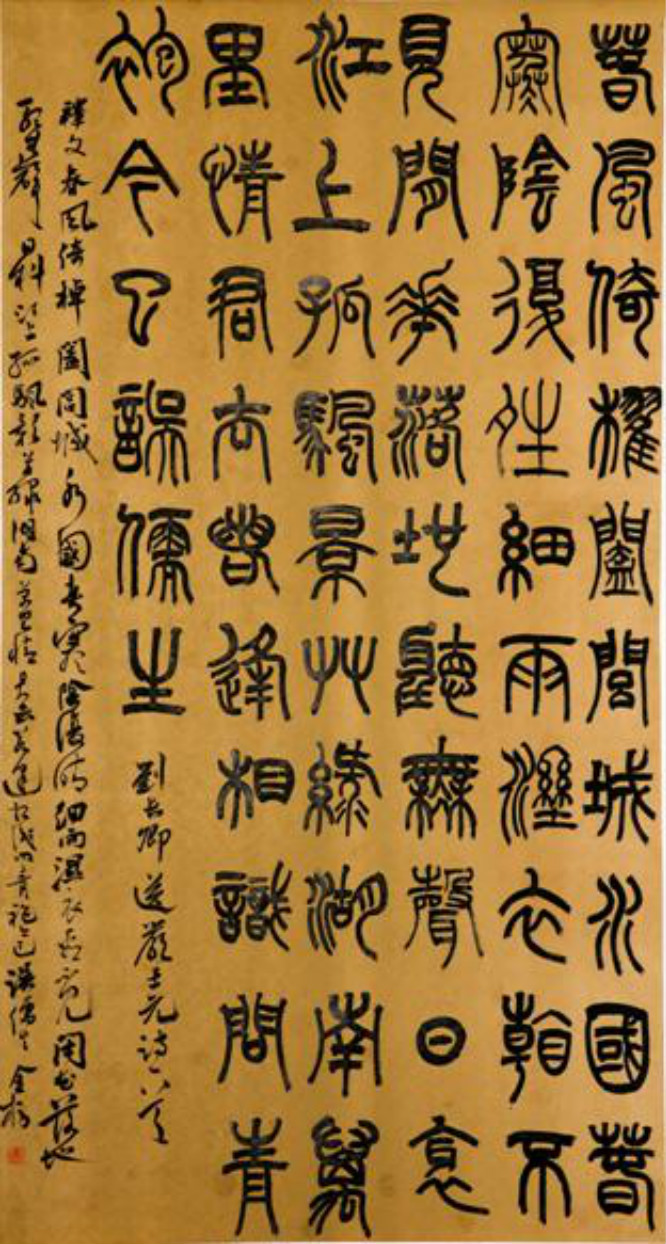 春風倚櫂闔閭城水國春
寒陰復夝細雨溼衣看不
見閒花落地聽無聲日衺
江上孤颿景艸綠湖南萬
里情君去若逢相識問青
袍今已誤儒生
劉長卿送嚴士元詩一首
釋文春風倚棹闔閭城水國春寒陰復晴細雨濕衣看不見閒花落地
聽無聲日斜江上孤颿影草綠湖南萬里情君去若逢相識問青袍今已誤儒生